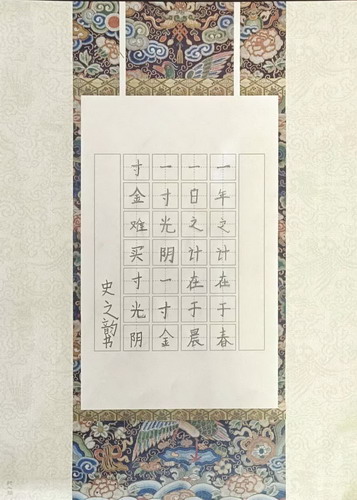 一年之计在于春
一日之计在于晨
一寸光阴一寸金
寸金难买寸光阴
史之韵书